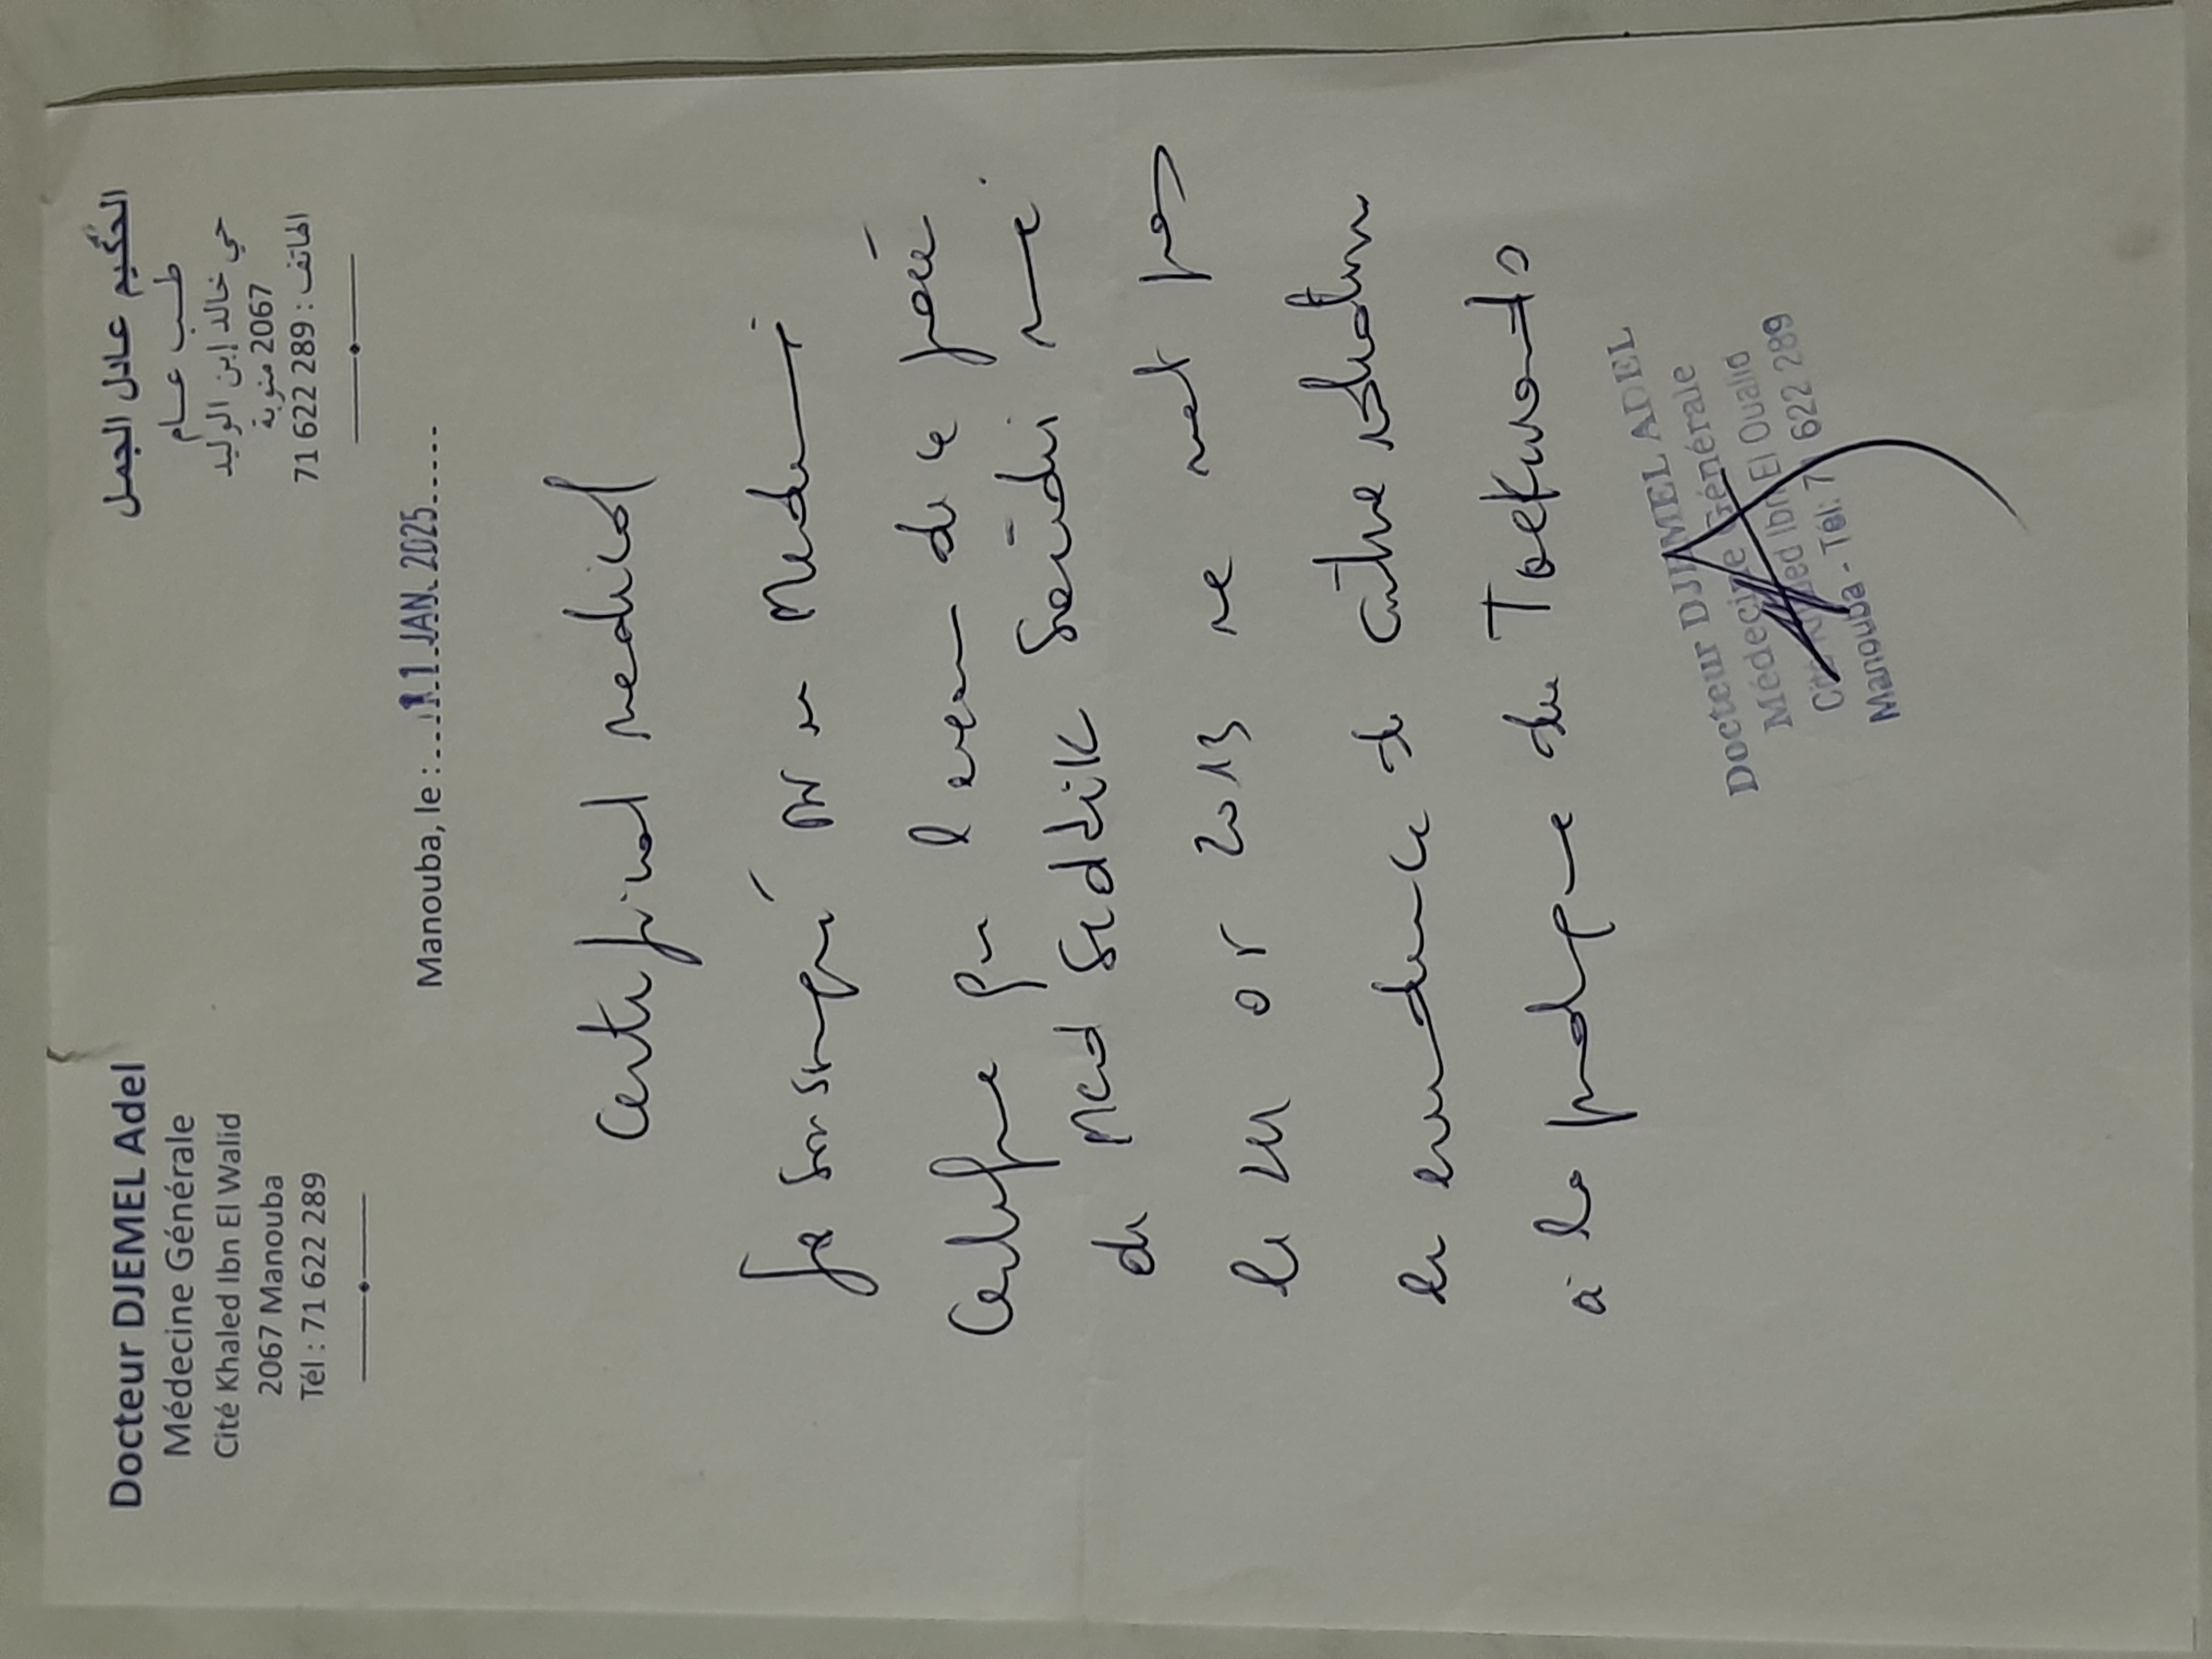 Docteur DJEMEL Adel
Médecine Générale
Cité Khaled Ibn El Walid
2067 Manouba
Tél : 71 622 289
الحكيم عادل الجمل
طب عام
حي خالد إبن الوليد
2067 منوبة
الهاتف : 289 622 71
Manouba, le : 11 JAN. 2025
Certificat médical
Je soussigné
Certifie que l'examen de ce jour
de Med Seddik Saidi né
le 2013 ne met pas
en évidence de contre indication
à la pratique du Taekwondo
Docteur DJEMEL ADEL
Médecine Générale
Cité Khaled Ibn El Oualid
Manouba - Tél: 71 622 289